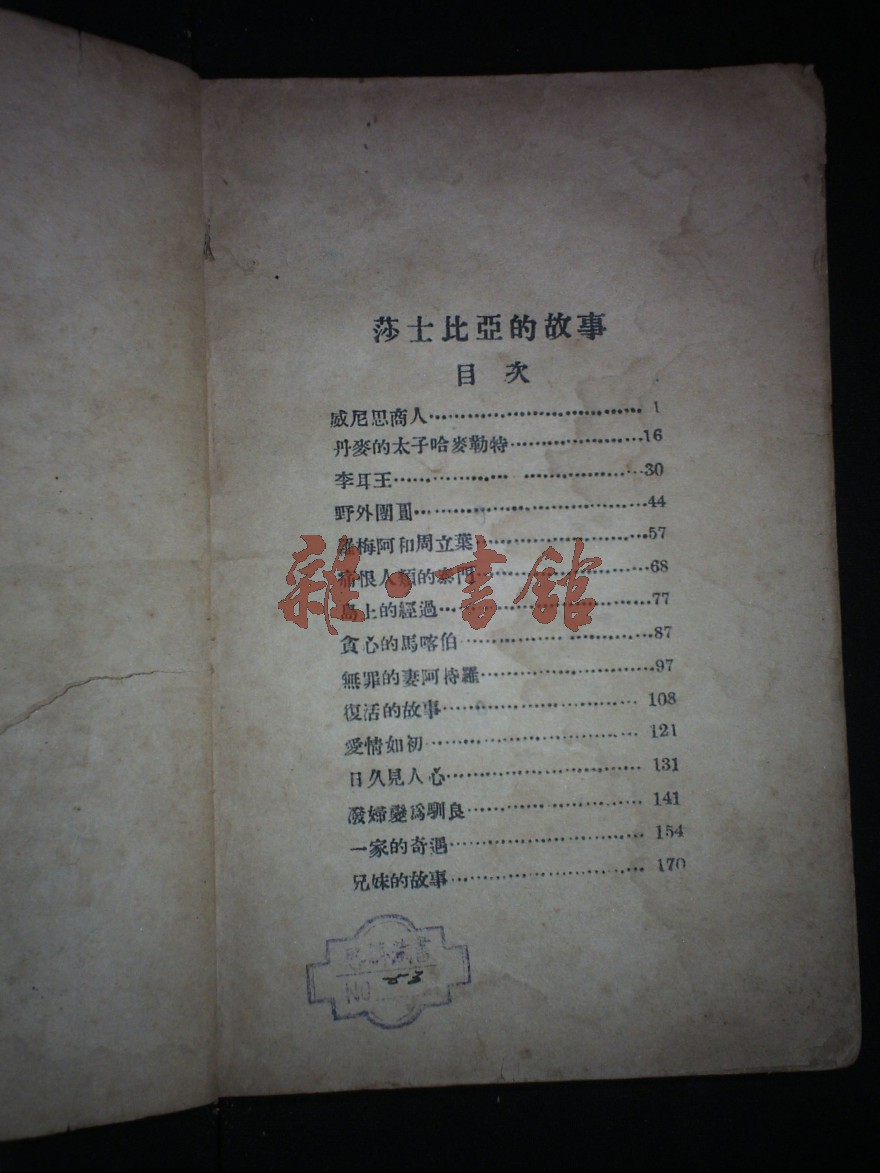 莎士比亞的故事
目次
威尼思商人 1
丹麥的太子哈麥勒特 16
李耳王 30
野外團圓 44
羅梅阿和周立葉 57
痛恨人類的泰門 68
島上的經過 77
貪心的馬喀伯 87
無罪的妻阿特羅 97
復活的故事 108
愛情如初 121
日久見人心 131
潑婦變爲馴良 141
一家的奇遇 154
兄妹的故事 170
雜·書館
藏書
NO 53